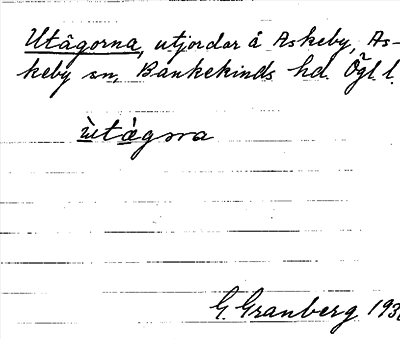 Utågorna, utjordar å Askeby, As-
keby sn, Bankekinds hd. Ögl. l.
ùtágoṛa
G. Granberg